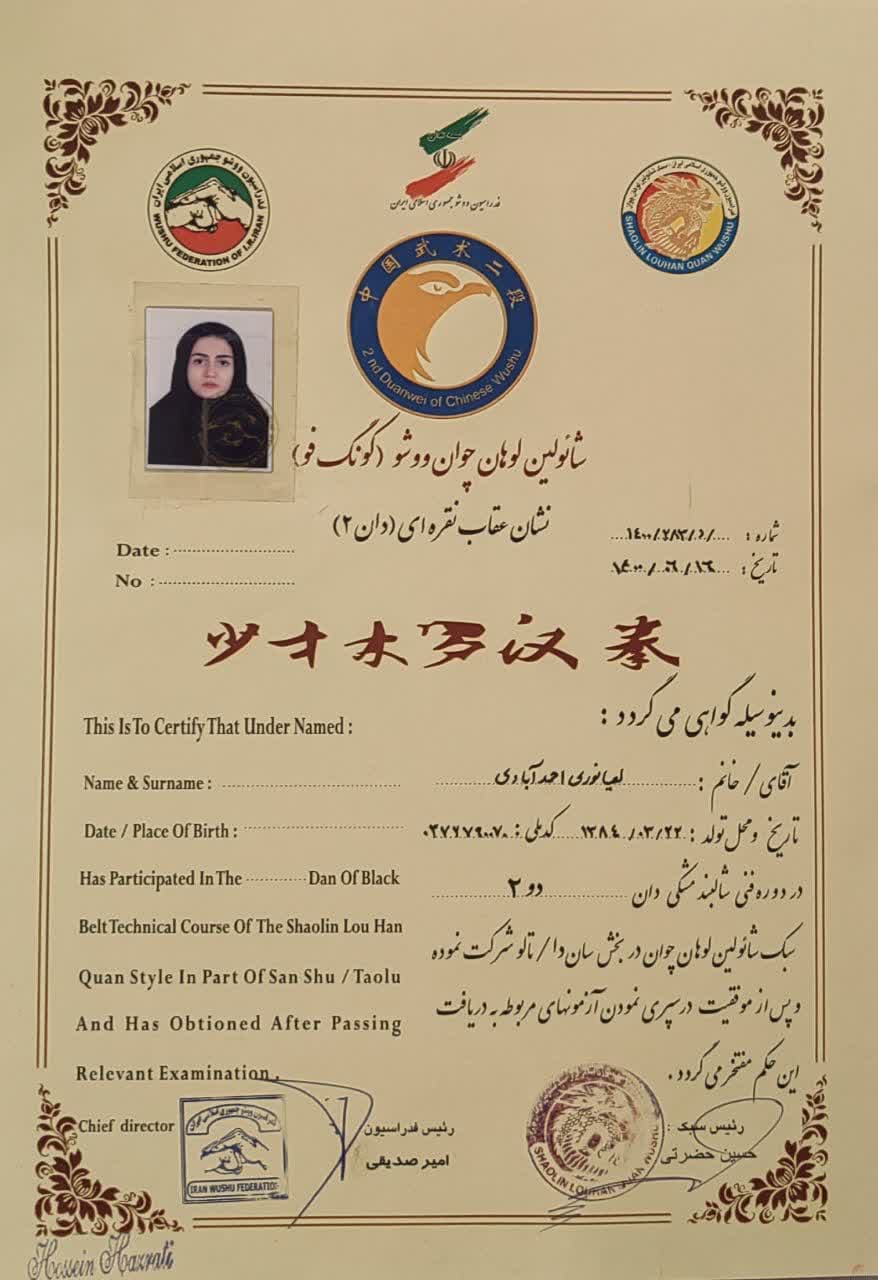 فدراسیون ووشو جمهوری اسلامی ایران
WUSHU FEDERATION OF I.R.IRAN
فدراسیون ووشو جمهوری اسلامی ایران
SHAOLIN LOUHAN QUAN WUSHU
中国武术二段
2 nd Duanwei of Chinese Wushu
شائولین لوهان چوان ووشو (گونگ فو)
نشان عقاب نقره ای (دان ۲)
شماره :
Date :
تاریخ : ۱۴۰۰/۰۶/۱۶
No :
少才木罗汉拳
بدینوسیله گواهی می گردد :
This Is To Certify That Under Named :
آقای / خانم : لعیا نوری احمدآبادی
Name & Surname :
تاریخ و محل تولد : ۱۳۸۴/۰۳/۲۲ کدملی :
Date / Place Of Birth :
در دوره فنی شالبند مشکی دان دو ۲
Has Participated In The Dan Of Black
سبک شائولین لوهان چوان در بخش سان دا / تالو شرکت نموده
Belt Technical Course Of The Shaolin Lou Han
Quan Style In Part Of San Shu / Taolu
و پس از موفقیت درسپری نمودن آزمونهای مربوطه به دریافت
And Has Obtioned After Passing
این حکم مفتخر می گردد .
Relevant Examination .
Chief director
رئیس فدراسیون
امیر صدیقی
رئیس سبک :
حسین حضرتی
IRAN WUSHU FEDERATION
SHAOLIN LOUHAN QUAN WUSHU
Hossein Hazrati